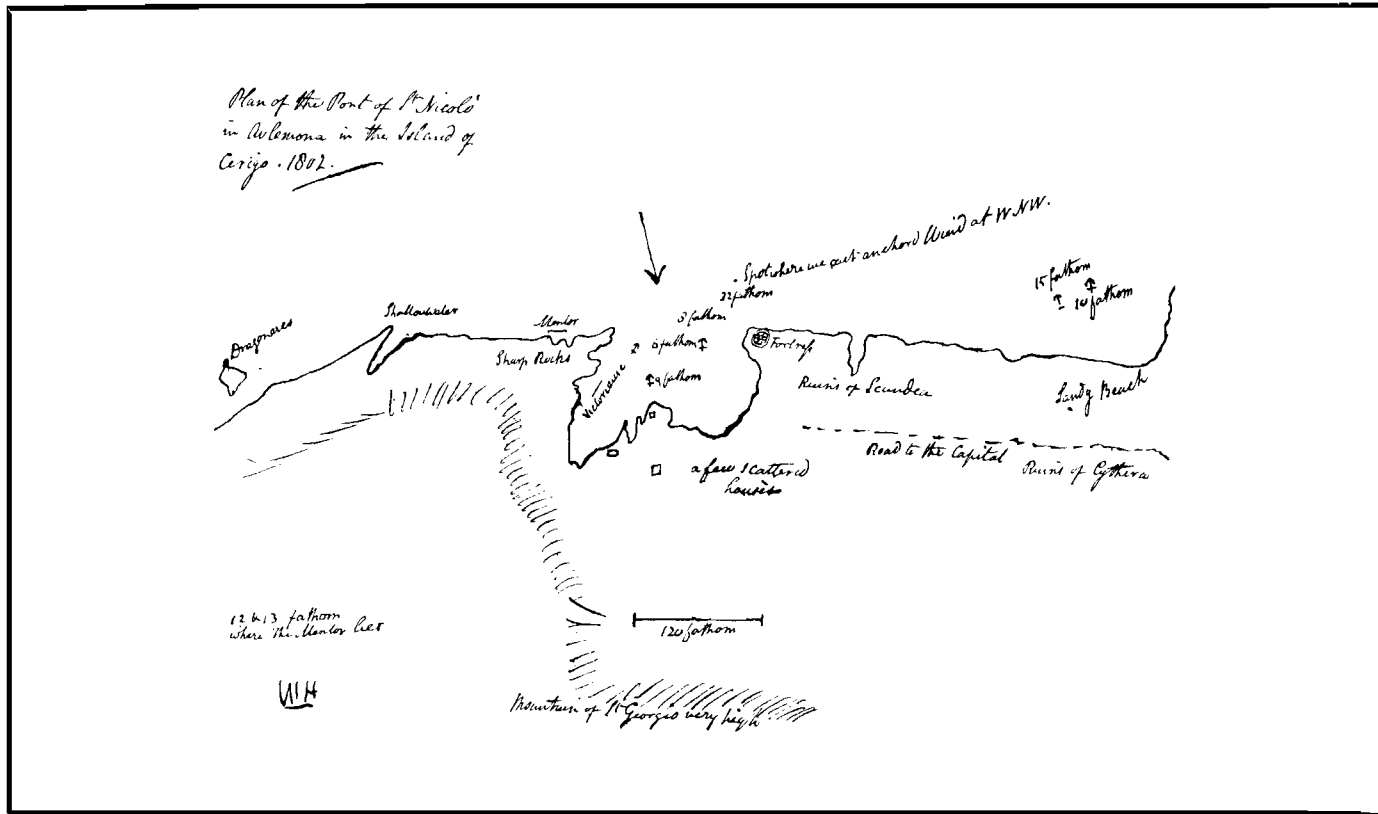 Plan of the Port of St Nicolò
in Avlemona in the Island of
Cerigo . 1802.
. Spot where we cast anchord Wind at W.NW.
22 fathom
15 fathom
10 fathom
Shallowater
Mentor
8 fathom
Dragonares
Sharp Rocks
6 fathom
Fortress
Victorieuse
9 fathom
Ruins of Scandea
Sandy Beach
Road to the Capital
Ruins of Cythera
a few scattered
houses
12 to 13 fathom
where the Mentor lies
120 fathom
WH
Mountain of St Georgio very high